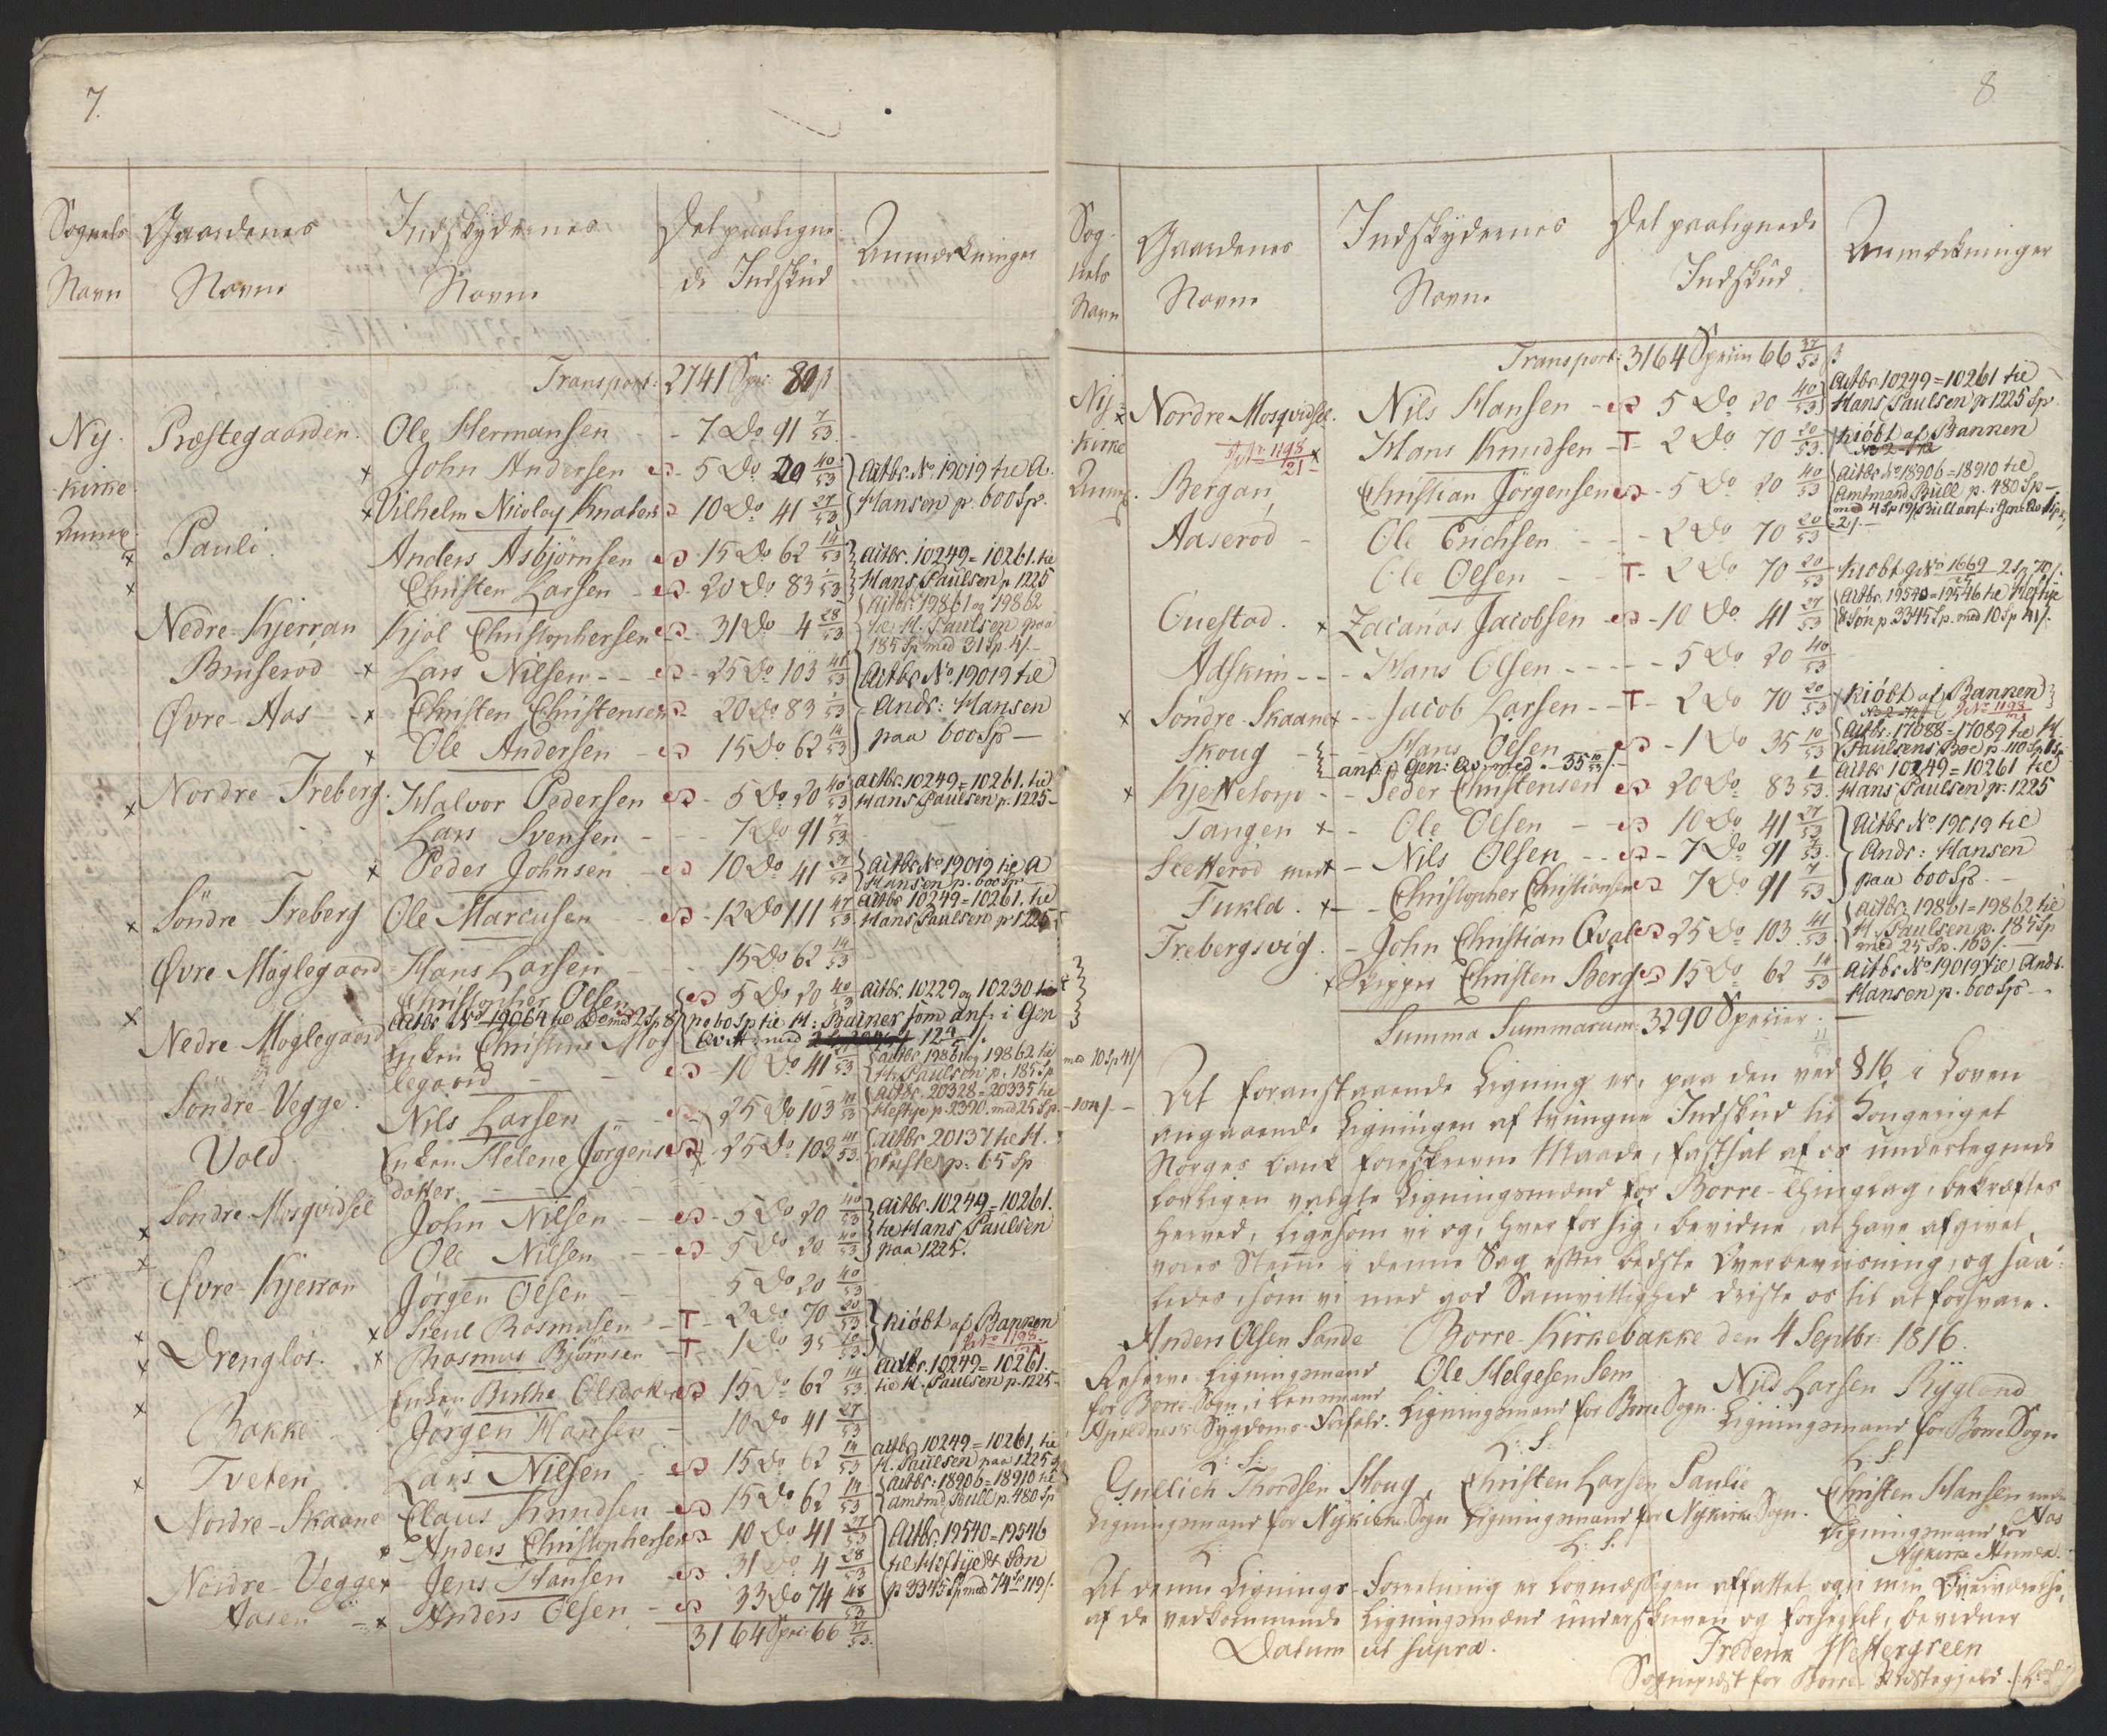 7.
Sognets Navn | Gaardenes Navne | Indskydernes Navne | Det paalignede Indskud | Anmærkninger
Transport: 2741 Spec: 80 β
Ny- Præstegaarden. Ole Hermansen - - 7 Do 91 7/53
kirke × John Andersen 5 Do 20 40/53 Actbr. No. 19019 til A.
Annex × Vilhelm Nicolay Knaben 10 Do 41 27/53 Hansen p. 600 Sp.
× Pauli. Anders Asbjørnsen 15 Do 62 14/53 Actbr. 10249=10261. til
× Christen Larsen 20 Do 83 1/53 Hans Paulsen p. 1225
Nedre Kjerran Kjøl Christophersen 31 Do 4 28/53 Actbr. 19861 og 19862 til H. Paulsen paa 185 Sp. med 31 Sp. 4/-
Bruserød × Lars Nilsen - - 25 Do 103 41/53 Actbr No. 19019 til
Øvre Aas × Christen Christensen 20 Do 83 1/53 Andr: Hansen
× Ole Andersen 15 Do 62 14/53 paa 600 Sp -
× Nordre Freberg. Halvor Pedersen 5 Do 20 40/53 Actbr. 10249=10261. til Hans Paulsen p. 1225-
Lars Svensen - - 7 Do 91 7/53
× Peder Johnsen 10 Do 41 27/53 Actbr No 19019 til A Hansen p. 600 Sp.
× Söndre Freberg Ole Marcusen 12 Do 111 47/53 Actbr 10249=10261. til Hans Paulsen p. 1225
Øvre Møglegaard Hans Larsen - - 15 Do 62 14/53
× Christopher Olsen 5 Do 20 40/53 Actbr. 10229 og 10230
Nedre Møglegaard Enken Christine Møglegaard - - 10 Do 41 27/53 Actbr. 19861 og 19862 til H. Paulsen p. 185 Sp. med 10 Sp 41/
Söndre Vegge. Nils Larsen 25 Do 103 41/53 Actbr. 20328=20335 til Heftye p. 2390. med 25 Sp. -104/-
Vold Enken Helene Jørgensdatter 25 Do 103 41/53 Actbr 20137 til H. p. 65 Sp
× Söndre Mosqvidsel John Nilsen 5 Do 20 40/53 Actbr. 10249=10261.
× Ole Nilsen 5 Do 20 40/53 til Hans Paulsen paa 1225.
Øvre Kjerran Jørgen Olsen 5 Do 20 40/53
× × Rasmusen - T - 2 Do 70 20/53 kiöbt af Banken
× Drengløs. × Rasmus Bjørnsen - T 1 Do 35 10/53 No. 1198
× Enken Birthe Olsdatter 15 Do 62 14/53 Actbr. 10249=10261. til H. Paulsen p. 1225-
Bakke Jørgen Hansen 10 Do 41 27/53
× Tveten Lars Nilsen 15 Do 62 14/53 Actbr 10249=10261, til H. Paulsen paa 1225
Nordre Skaane Claus Knudsen 15 Do 62 14/53 Actbr: 18906=18910 til Amtmd. Bull p. 480 Sp
× Anders Christophersen 10 Do 41 27/53 Actbr: 19540=19546
Nordre Vegge × Jens Hansen 31 Do 4 28/53 til Heftye & Søn
Aasen × Anders Olsen 33 Do 74 48/53 p 3345 Sp. med 74 Sp 119/.
3164 Spec: 66 37/53
8
Sognets Navn | Gaardenes Navne | Indskydernes Navne | Det paalignede Indskud | Anmærkninger
Transport: 3164 Specier 66 37/53 β
Ny- × Nordre Mosqvidsel. Nils Hansen - 5 Do 20 40/53 Actbr 10249=10261 til Hans Paulsen p 1225 Sp.
kirke No 1198/21 × Hans Knudsen - T - 2 Do 70 20/53 kiöbt af Banken
Annex. Bergan, Christian Jörgensen 5 Do 20 40/53 Actbr. No 18906=18910 til Amtmand Bull p. 480 Sp-
Aaserød - Ole Erichsen - - 2 Do 70 20/53
Ole Olsen T - 2 Do 70 20/53 kiöbt No 1669 2 Sp 70/.
Gvestad. × Zacarias Jacobsen 10 Do 41 27/53 Actbr. 19540=19546 til Heftye & Søn p. 3345 Sp. med 10 Sp 41/.
Adskim - - - Hans Olsen - - - - 5 Do 20 40/53
× Söndre Skaane × - - Jacob Larsen - - T - 2 Do 70 20/53 kiöbt af Banken No 1198
Skoug - - - Hans Olsen 1 Do 35 10/53 Actbr. 17088=17089 til H. Paulsens Boe p. 110 Sp
× Kjettetorp - - Peder Christensen 20 Do 83 1/53 Actbr 10249=10261 til Hans Paulsen p. 1225
Tangen × - Ole Olsen 10 Do 41 27/53 Actbr No 19019 til
Sletterød × - Nils Olsen 7 Do 91 7/53 Andr: Hansen
Fukla. × - - Christopher Christiansen 7 Do 91 7/53 paa 600 Sp. -
Frebergsvig. - John Christian Qval 25 Do 103 41/53 Actbr. 19861=19862 til H. Paulsen p. 185 Sp med 25 Sp. 103/.
× Skipper Christen Berg 15 Do 62 14/53 Actbr No 19019 til Andr. Hansen p. 600 Sp -
Summa Summarum: 3290 Specier.
At foranstaaende Ligning er, paa den ved § 16 i Loven
angaaende Ligningen af tvungne Indskud til Kongeriget
Norges Bank foreskrevne Maade, fastsat af os undertegnede
lovligen valgte Ligningsmænd for Borre Thinglag, bekræftes
herved, ligesom vi og, hver for sig, bevidne, at have afgivet
vores Stemme i denne Sag efter bedste Overbeviisning, og saa-
ledes, som vi med god Samvittighed driste os til at forsvare.
Borre Kirkebakke den 4 Septbr: 1816.
Anders Olsen Sande
Reserve Ligningsmand
for Borre Sogn, i Lensmand
Sygdoms Forfald.
L: S:
Ole Helgesen Sem
Ligningsmand for Borre Sogn.
L: S:
Nils Larsen Rygland
Ligningsmand for Borre Sogn
L: S:
Gullich Thordsen Houg,
Ligningsmand for Nykirke Sogn
Christen Larsen Paulie
Ligningsmand for Nykirke Sogn.
L: S:
Christen Hansen Aas
Ligningsmand for
Nykirke Annex.
At denne Lignings-Forretning er lovmæssigen affattet og i min Overværelse,
af de vedkommende Ligningsmænd underskreven og forseglet, bevidner
Datum ut supra.
Frederik Westergreen
Sogneprest for Borre Præstegjeld. (L: S:)